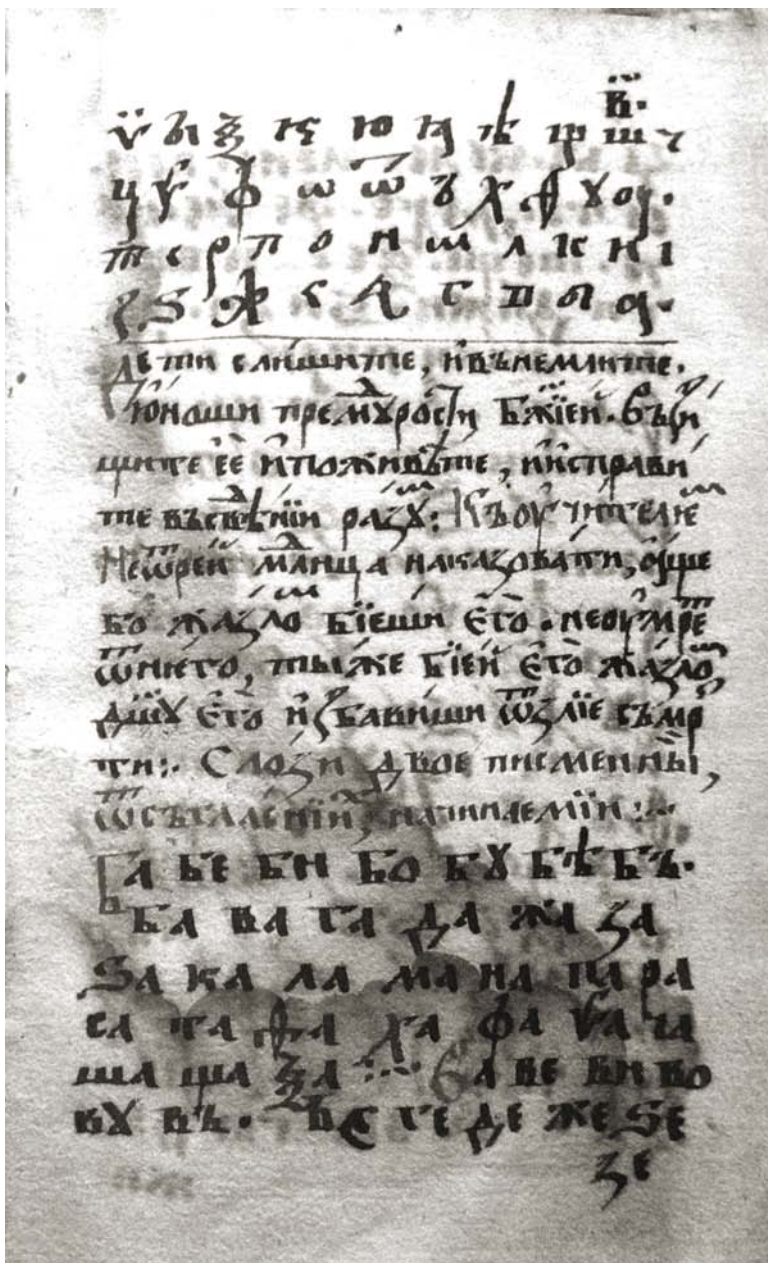 в҃·
ѷ ы ѯ ѥ ю ѩ ѣ щ ш ч
ц ѱ ф ѡ ѿ ъ х ѳ ꙋ оу·
т с р п о н м л к и і
ꙁ ѕ ж є д г в б а·
Дети слишите, и҆вънемлите.
Ю҆ноши премⷣꙋрости бж҃їей. Въꙁи
щите еѐ и҆поживѣте, и҆исправи
те въсвѣⷣнїи раꙁꙋⷨ: Къоу҆чителеⷨ
Неѿрей млⷣнца наказовати, а҆ще
бо жаꙁлоⷨ бїеши є҆го̀. неоу҆мреⷮ
ѿнего, тыже бїей є҆го̀ жаꙁлоⷨ
дш҃ꙋ є҆го̀ и҆ꙁбавиши ѿꙁлїе съмр
ти:· Слоꙁи двое писменныⷯ,
ѿсъгласнїи, начинаемїи:~
Ба бе би бо бꙋ бѣ бъ.
ба ва га да жа ꙁа
ѕа ка ла ма на па ра
са та ѳа ха фа ѱа ча
ша ща ѯа :~ Ва ве ви во
вꙋ въ. бє ге де же ѕе
ꙁе